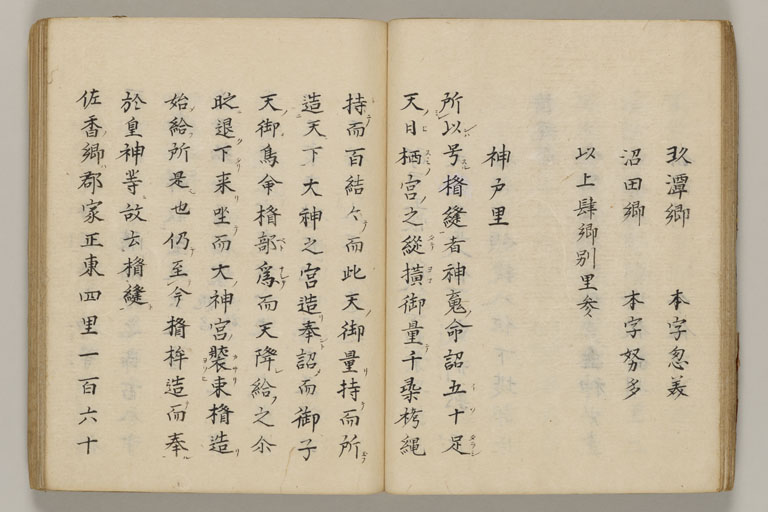 玖潭郷　本字忽美
沼田郷　本字努多
以上肆郷別里参
神戸里
所以号楯縫者神魂命詔五十足
天日栖宮之縦横御量千尋栲縄
持而百結々而此天御量持而所
造天下大神之宮造奉詔而御子
天御鳥命楯部為而天降給之尒
時退下来坐而大神宮装束楯造
始給所是也仍至今楯桙造而奉
於皇神等故云楯縫
佐香郷郡家正東四里一百六十